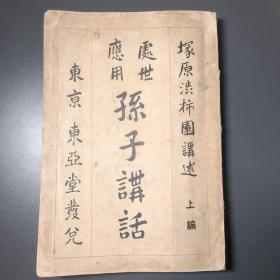 塚原渋柿園講述 上編
處世
應用
孫子講話
東京 東亞堂發兌